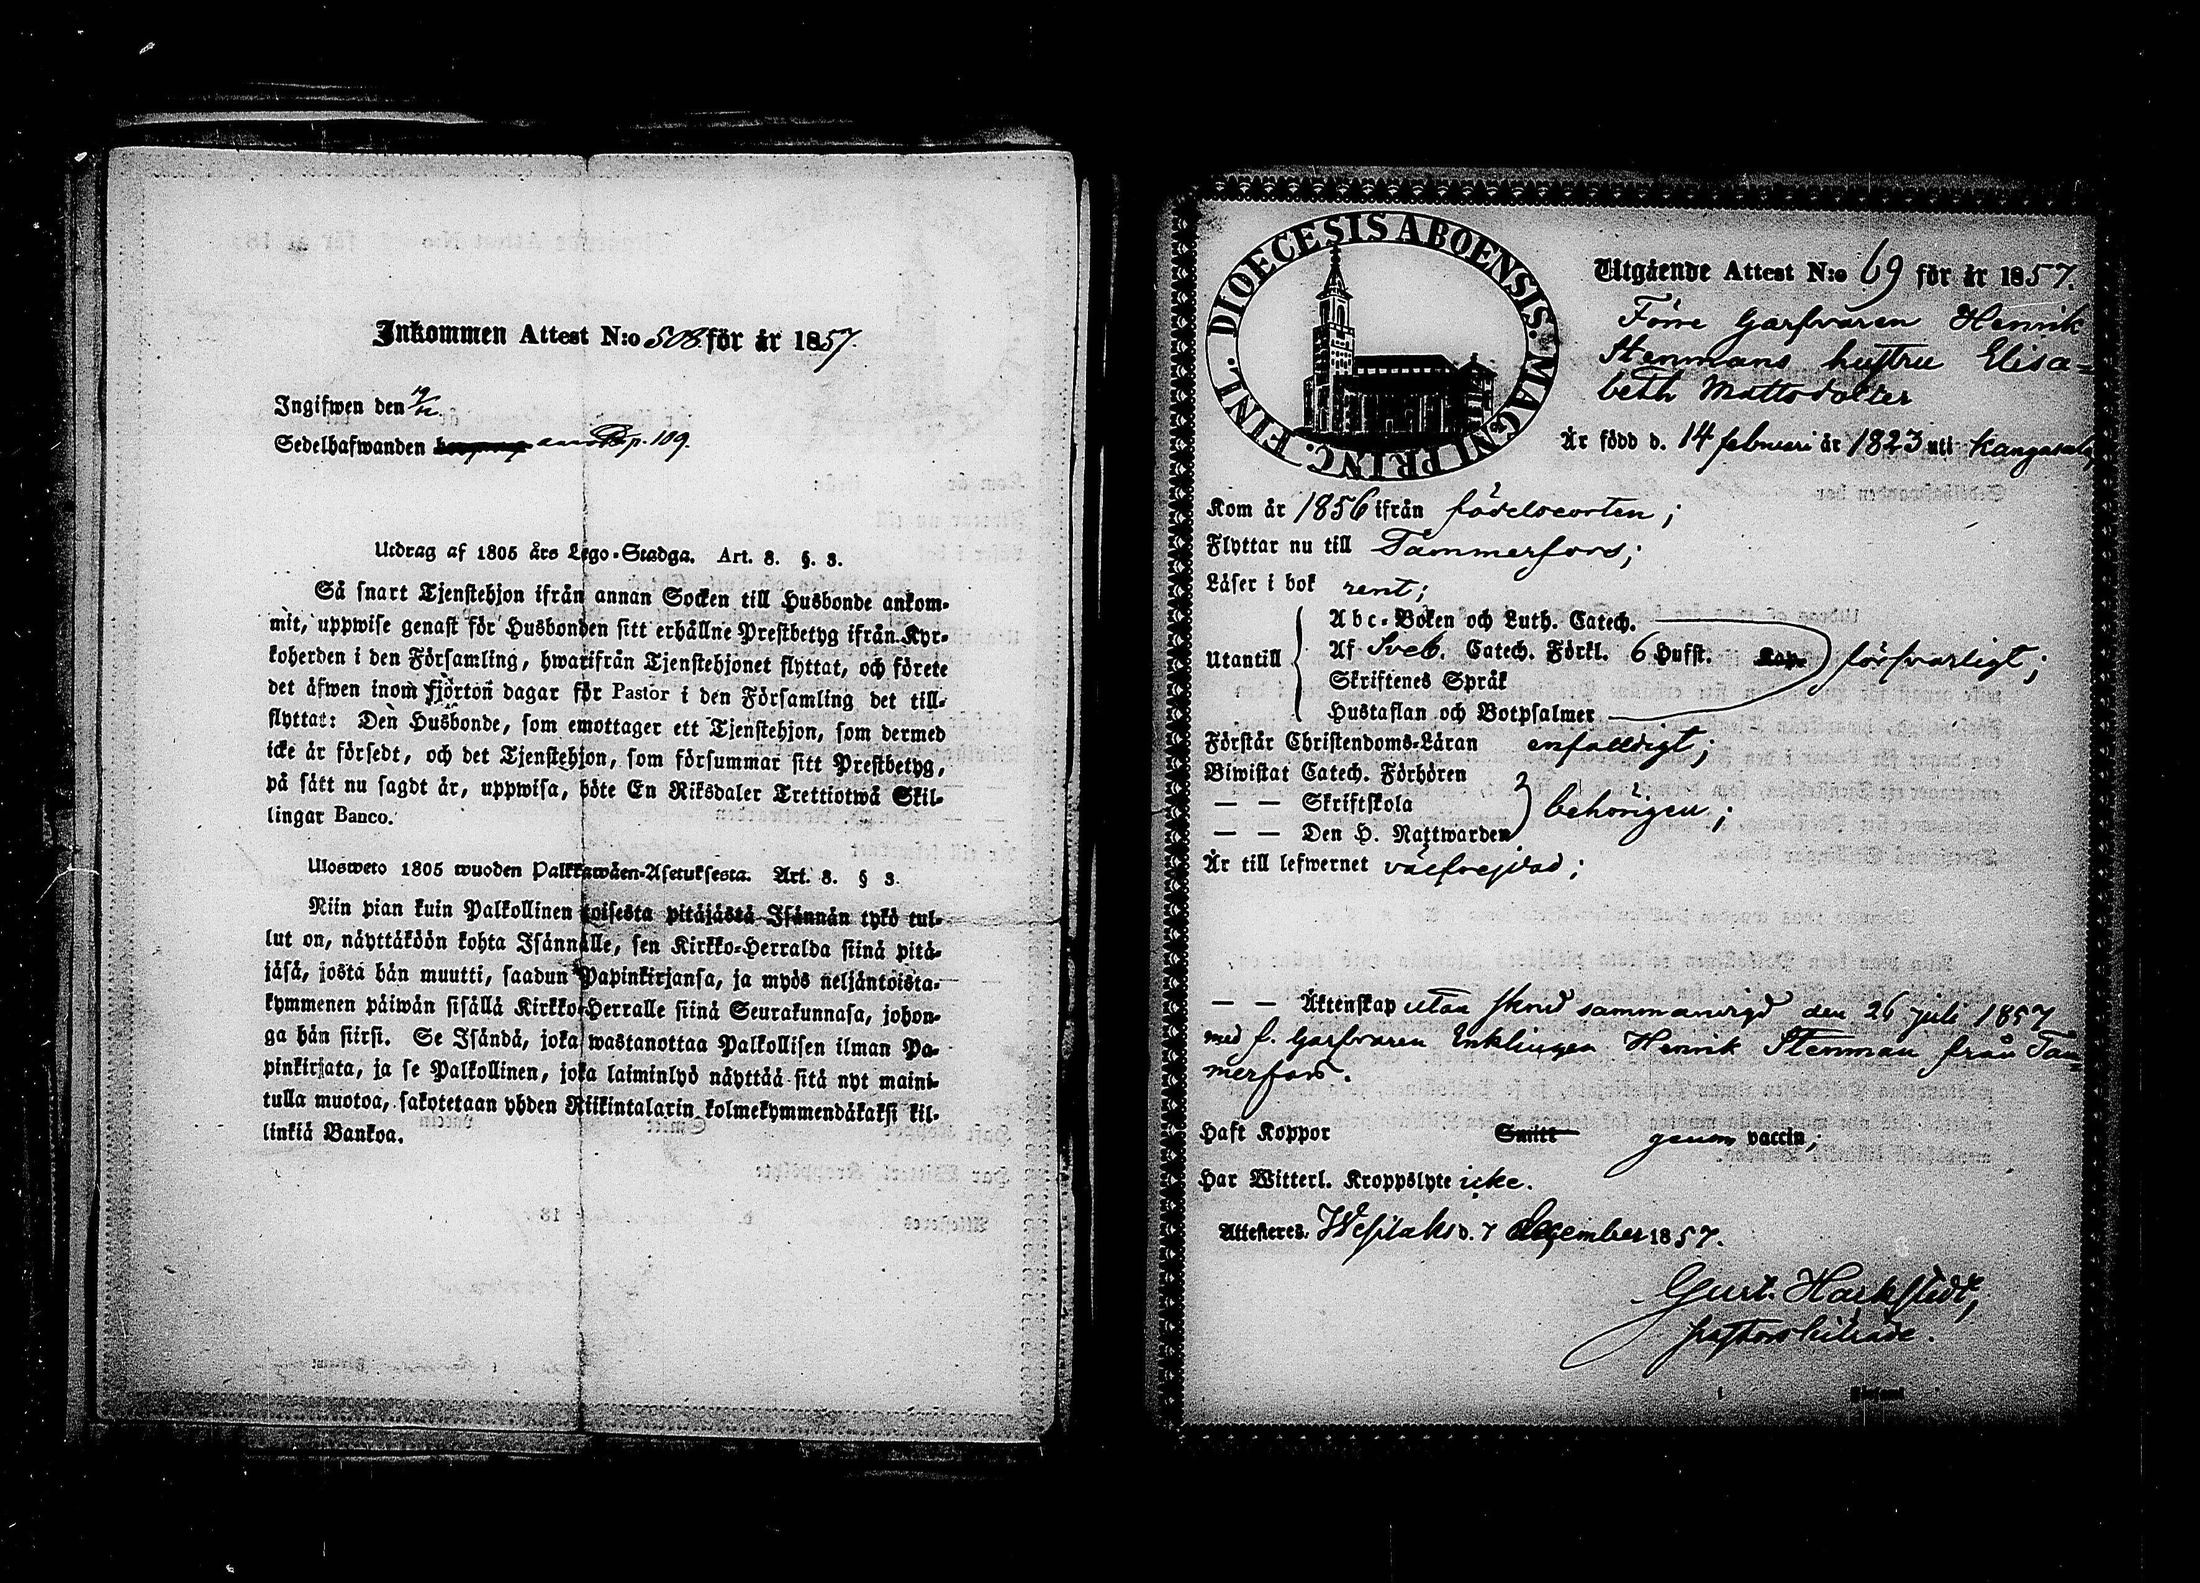 Inkommen Attest N:o 508 för år 1857.
Ingifwen den
Sedelhafwanden p. 109.
Utdrag af 1805 års Lego-Stadga. Art. 8. §. 3.
Så snart Tjenstehjon ifrån annan Socken till Husbonde ankom-
mit, uppwise genast för Husbonden sitt erhållne Prestbetyg ifrån Kyr-
koherden i den Församling, hwarifrån Tjenstehjonet flyttat, och förete
det äfwen inom fjorton dagar för Pastor i den Församling det till-
flyttat: Den Husbonde, som emottager ett Tjenstehjon, som dermed
icke är försedt, och det Tjenstehjon, som försummar sitt Prestbetyg,
på sätt nu sagdt är, uppwisa, böte En Riksdaler Trettiotwå Skil-
lingar Banco.
Ulosweto 1805 wuoden Palkkawäen-Asetuksesta. Art. 8. § 3.
Niin pian kuin Palkollinen toisesta pitäjästä Isännän tykö tul-
lut on, näyttäköön kohta Isännälle, sen Kirkko-Herralda siinä pitä-
jäsä, josta hän muutti, saadun Papinkirjansa, ja myös neljäntoista-
kymmenen päiwän sisällä Kirkko-Herralle siinä Seurakunnasa, johon-
ga hän siirsi. Se Isändä, joka wastanottaa Palkollisen ilman Pa-
pinkirjata, ja se Palkollinen, joka laiminlyö näyttää sitä nyt maini-
tulla muotoa, sakotetaan yhden Riikintalarin kolmekymmendäkaksi kil-
linkiä Bankoa.
DIOECESIS ABOENSIS. MAGNI PRINC. FINL.
Utgående Attest N:o 69 för år 1857.
Förre Garfvaren Henrik
Stenmans hustru Elisa-
beth Mattsdotter
Är född d. 14 februari år 1823 uti Kangasala,
Kom år 1856 ifrån födelseorten;
Flyttar nu till Tammerfors;
Läser i bok rent;
Utantill
Abc-Boken och Luth. Catech.
Af Sveb. Catech. Förkl. 6 Hufst. Kap. försvarligt;
Skriftenes Språk
Hustaflan och Botpsalmer
Förstår Christendoms-Läran enfaldigt;
Biwistat Catech. Förhören
— — Skriftskola behörigen;
— — Den H. Nattwarden
Är till lefwernet välfrejdad;
— — Äktenskap utan skrud sammanvigd den 26 juli 1857
med f. Garfvaren Enklingen Henrik Stenman från Tam-
merfors.
Haft Koppor Smitt genom vaccin;
Har Witterl. Kroppslyte icke.
Attesteres. Wesilaks d. 7 december 1857.
Gust. Harkstedt,
pastorsbiträde.